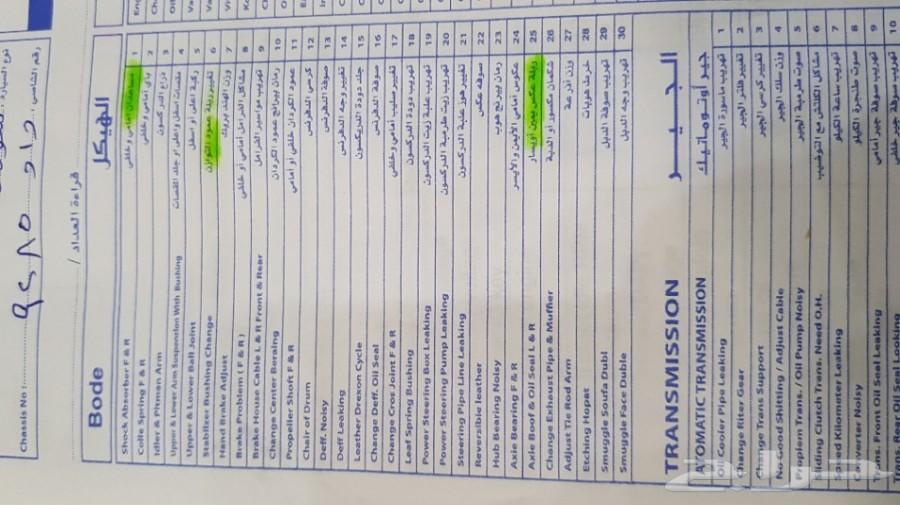 Chassis No : رقم الشاسي
قراءة العداد /
Bode الهيكل
Shock Absorber F & R 1 مساعدات امامي وخلفي
Colle Spring F & R 2 ياي امامي وخلفي
Idler & Pitman Arm 3
Upper & Lower Arm Suspenssion With Bushing 4
Upper & Lower Ball Joint 5
Stabilizer Bushing Change 6 تغيير ربلة عمود التوازن
Hand Brake Adjust 7 وزن الهند بريك
Brake Problem ( F & R ) 8 مشاكل الفرامل امامي أو خلفي
Brake House Cable L & R Front & Rear 9 تهريب مواسير الفرامل
Change Center Beraing 10 تغيير بيرالنج عمود الكردان
Propeller Shoft F & R 11 عمود الكردان خلفي أو امامي
Chair of Drum 12 كرسي الدفرنس
Deff. Noisy 13 صوت الدفرنس
Deff Leaking 14 تغيير وجه الدفرنس
Leather Drexon Cycle 15 جلد دودة الدركسون
Change Deff. Oil Seal 16 صوفة الدفرنس
Change Cros Joint F & R 17 تغيير صليب أمامي وخلفي
Leaf Spring Bushing 18 تهريب دودة الدركسون
Power Steering Box Leaking 19 تهريب علبة زيت الدركسون
Power Steering Pump Leaking 20 تهريب زيت طرمبة الدركسون
Steering Pipe Line Leaking 21 تغيير هوز علبة الدركسون
Reversible leather 22 صوفه عكس
Hub Bearing Noisy 23 رمان بيرنج هوب
Axie Bearing F & R 24 عكوس امامي الأيمن والأيسر
Axie Boof & Oil Seal L & R 25 ربلة عكس يمين أو يسار
Change Exhaust Pipe & Muffler 26 شكمان مكسور أو الدبة
Adjust Tie Rod Arm 27 وزن أذرعة
Etching Hopat 28 خرط هوبات
Smuggle Soufa Dubl 29 تهريب سوفة الدبل
Smuggle Face Duble 30 تهريب وجه الدبل
TRANSMISSION الجيــــر
ATOMATIC TRANSMISSION جير أوتوماتيك
Oil Cooler Pipe Leaking 1 تهريب ماسورة الجير
Change Filter Gear 2 تغيير فلتر الجير
Change Trans Support 3 تغيير كرسي الجير
No Good Shifting / Adjust Cable 4 وزن سلك الجير
Proplem Trans. / Oil Pump Noisy 5 صوت طرمبة الجير
Sliding Clutch Trans. Need O.H. 6 مشاكل الكلتش مع التوضيب
Speed Kilometer Leaking 7 تهريب ساعة الكيلو
Converter Noisy 8
Trans. Front Oil Seal Leaking 9 تهريب صوفة جير امامي
Trans. Reer Oil Seal Looking 10
حراج